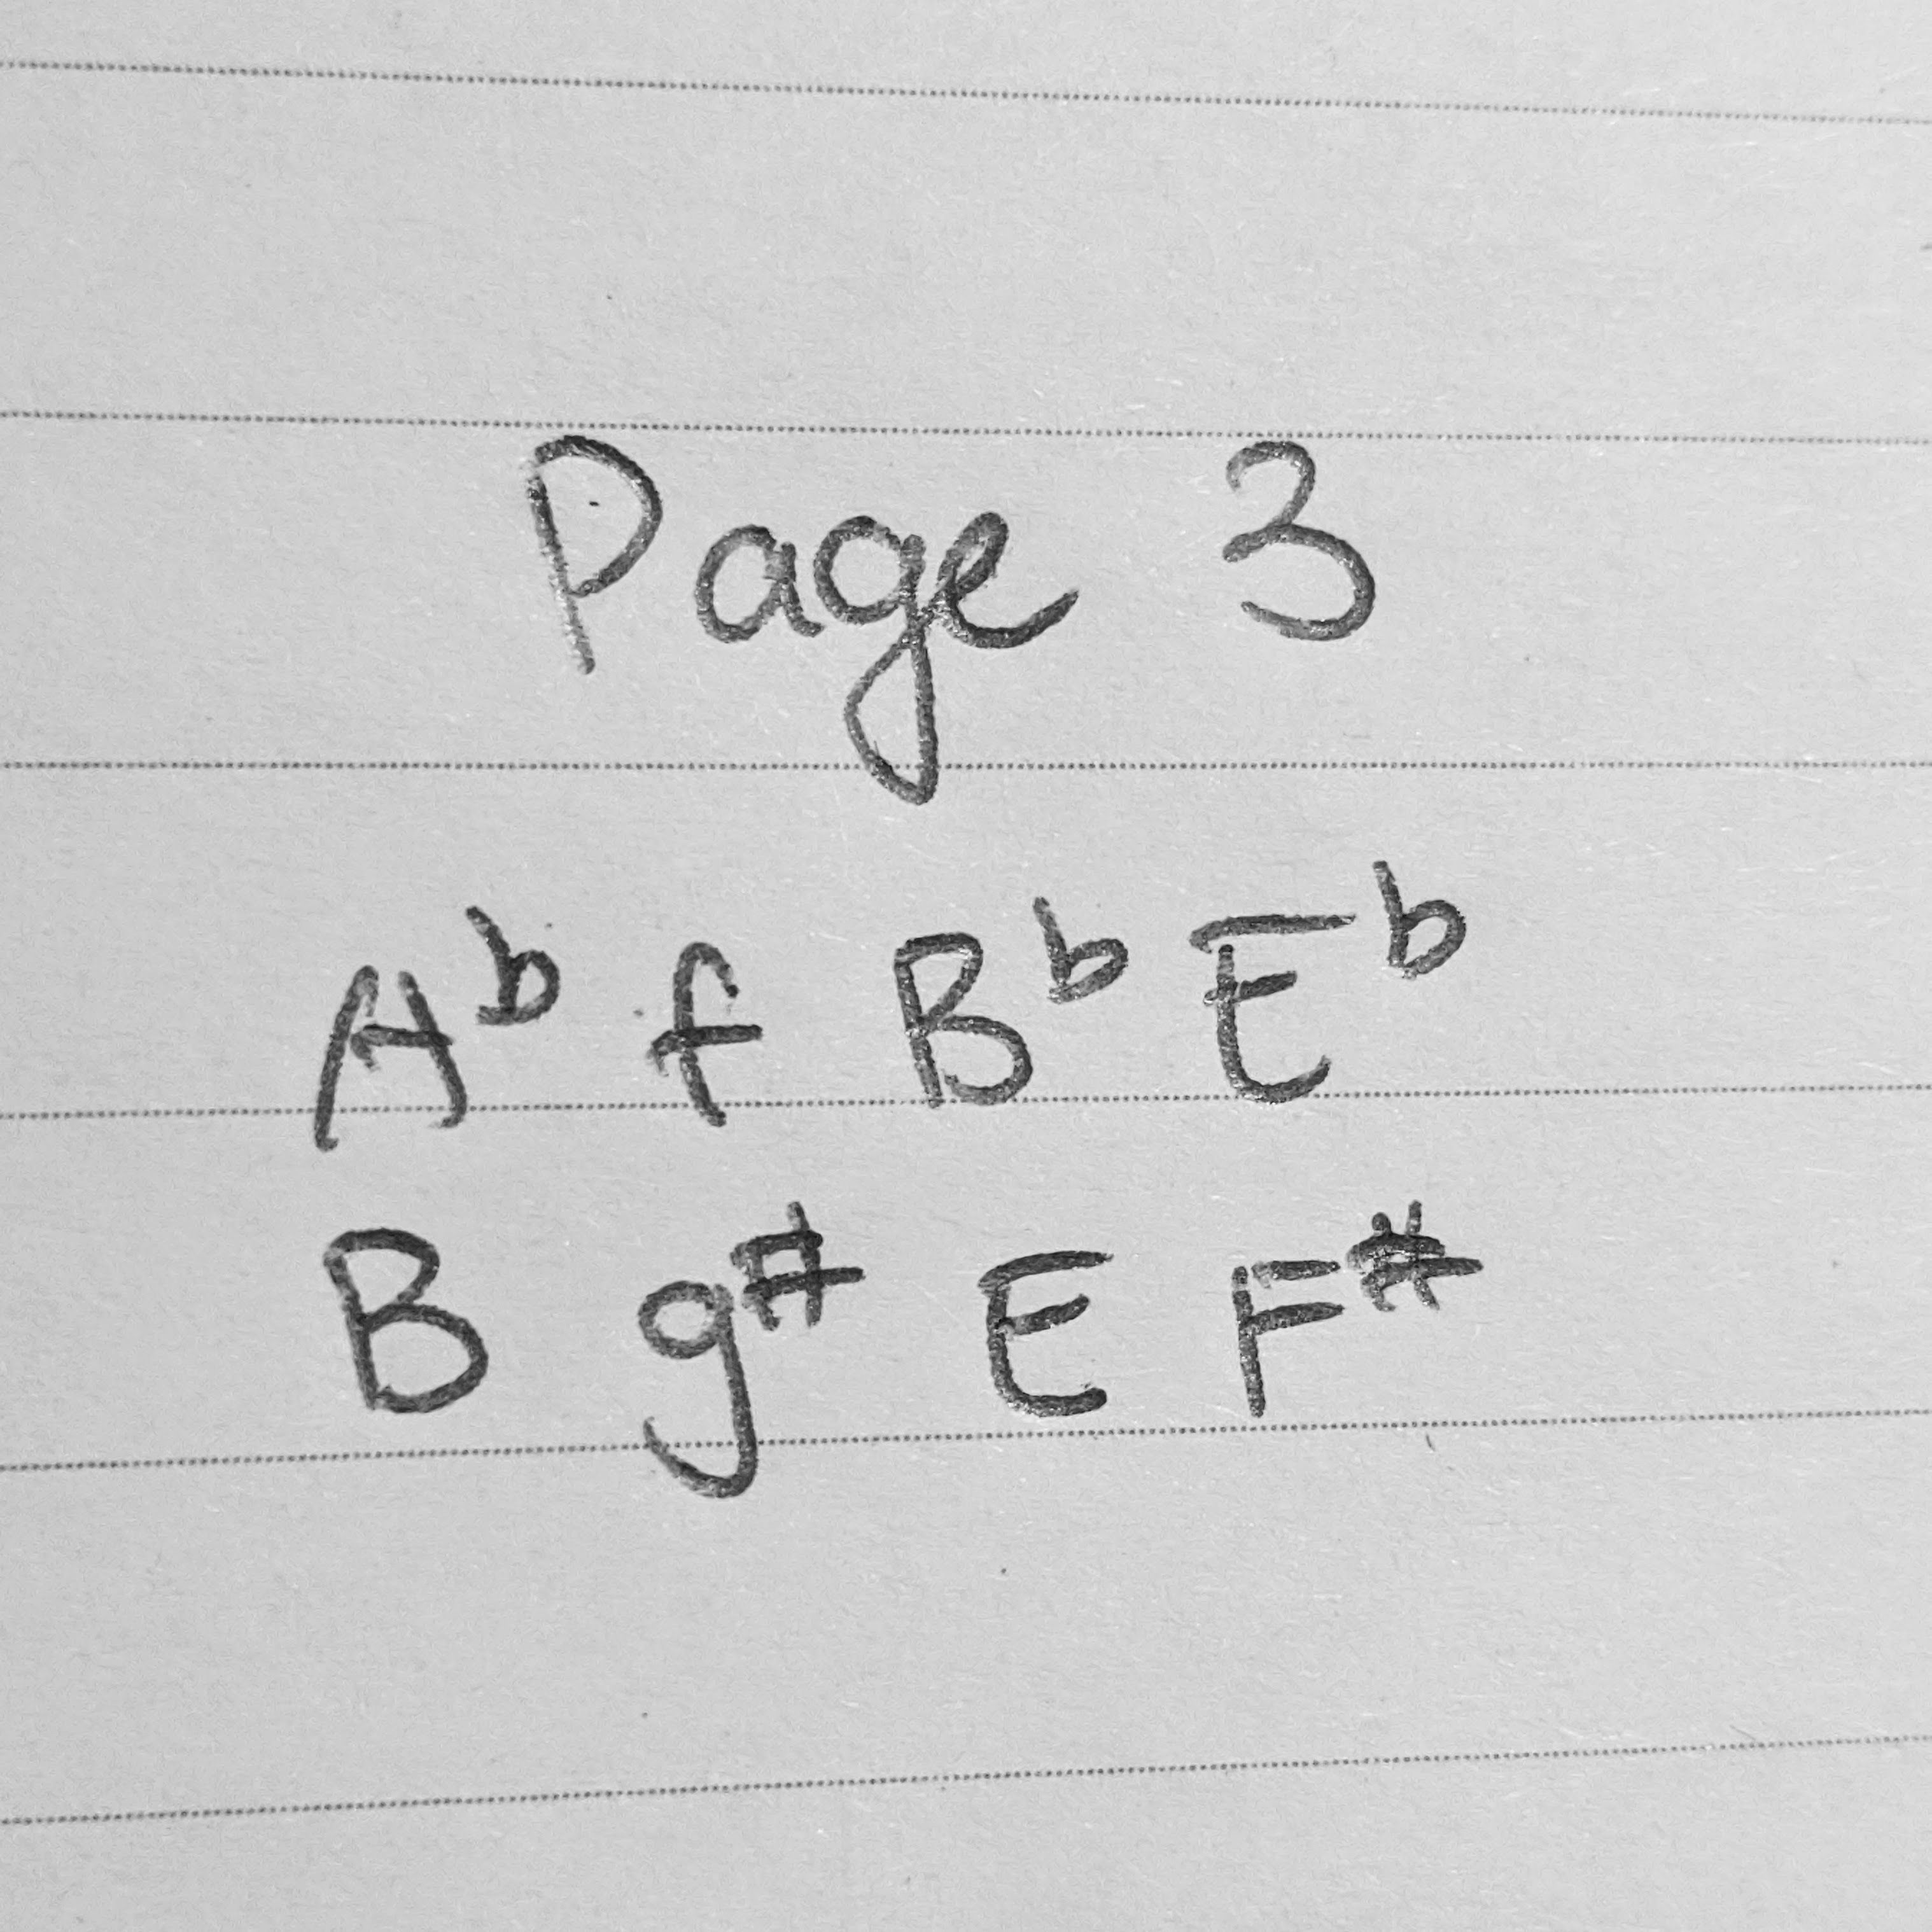 Page 3
A^b f B^b E^b
B g^# E F^#